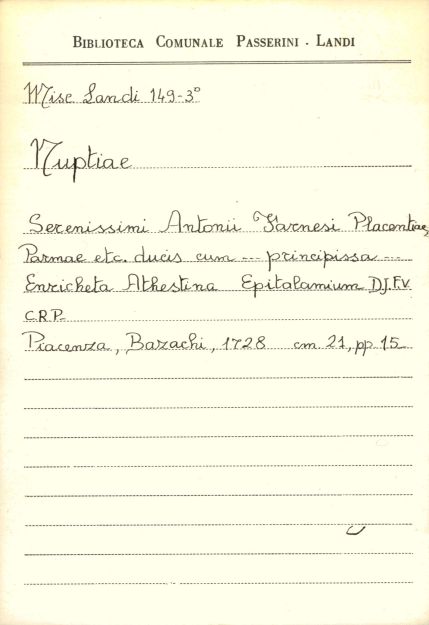 BIBLIOTECA COMUNALE PASSERINI - LANDI
Misc Landi 149-3°
Nuptiae
Serenissimi Antonii Farnesi Placentiae,
Parmae etc. ducis cum --- principissa ---
Enricheta Athestina Epitalamium D.J.F.V.
C.R.P.
Piacenza, Bazachi, 1728 cm. 21, pp. 15